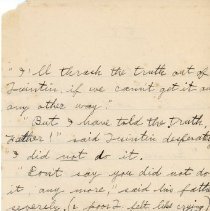 "I'll thrash the truth out of
Quintin, if we cannt get it an
any other way."
"But I have told the truth
Father!" said Quintin desperate
I did not do it.
"Don't say you did not do
it any more," said his fath
severely. (a poor I felt like crying)